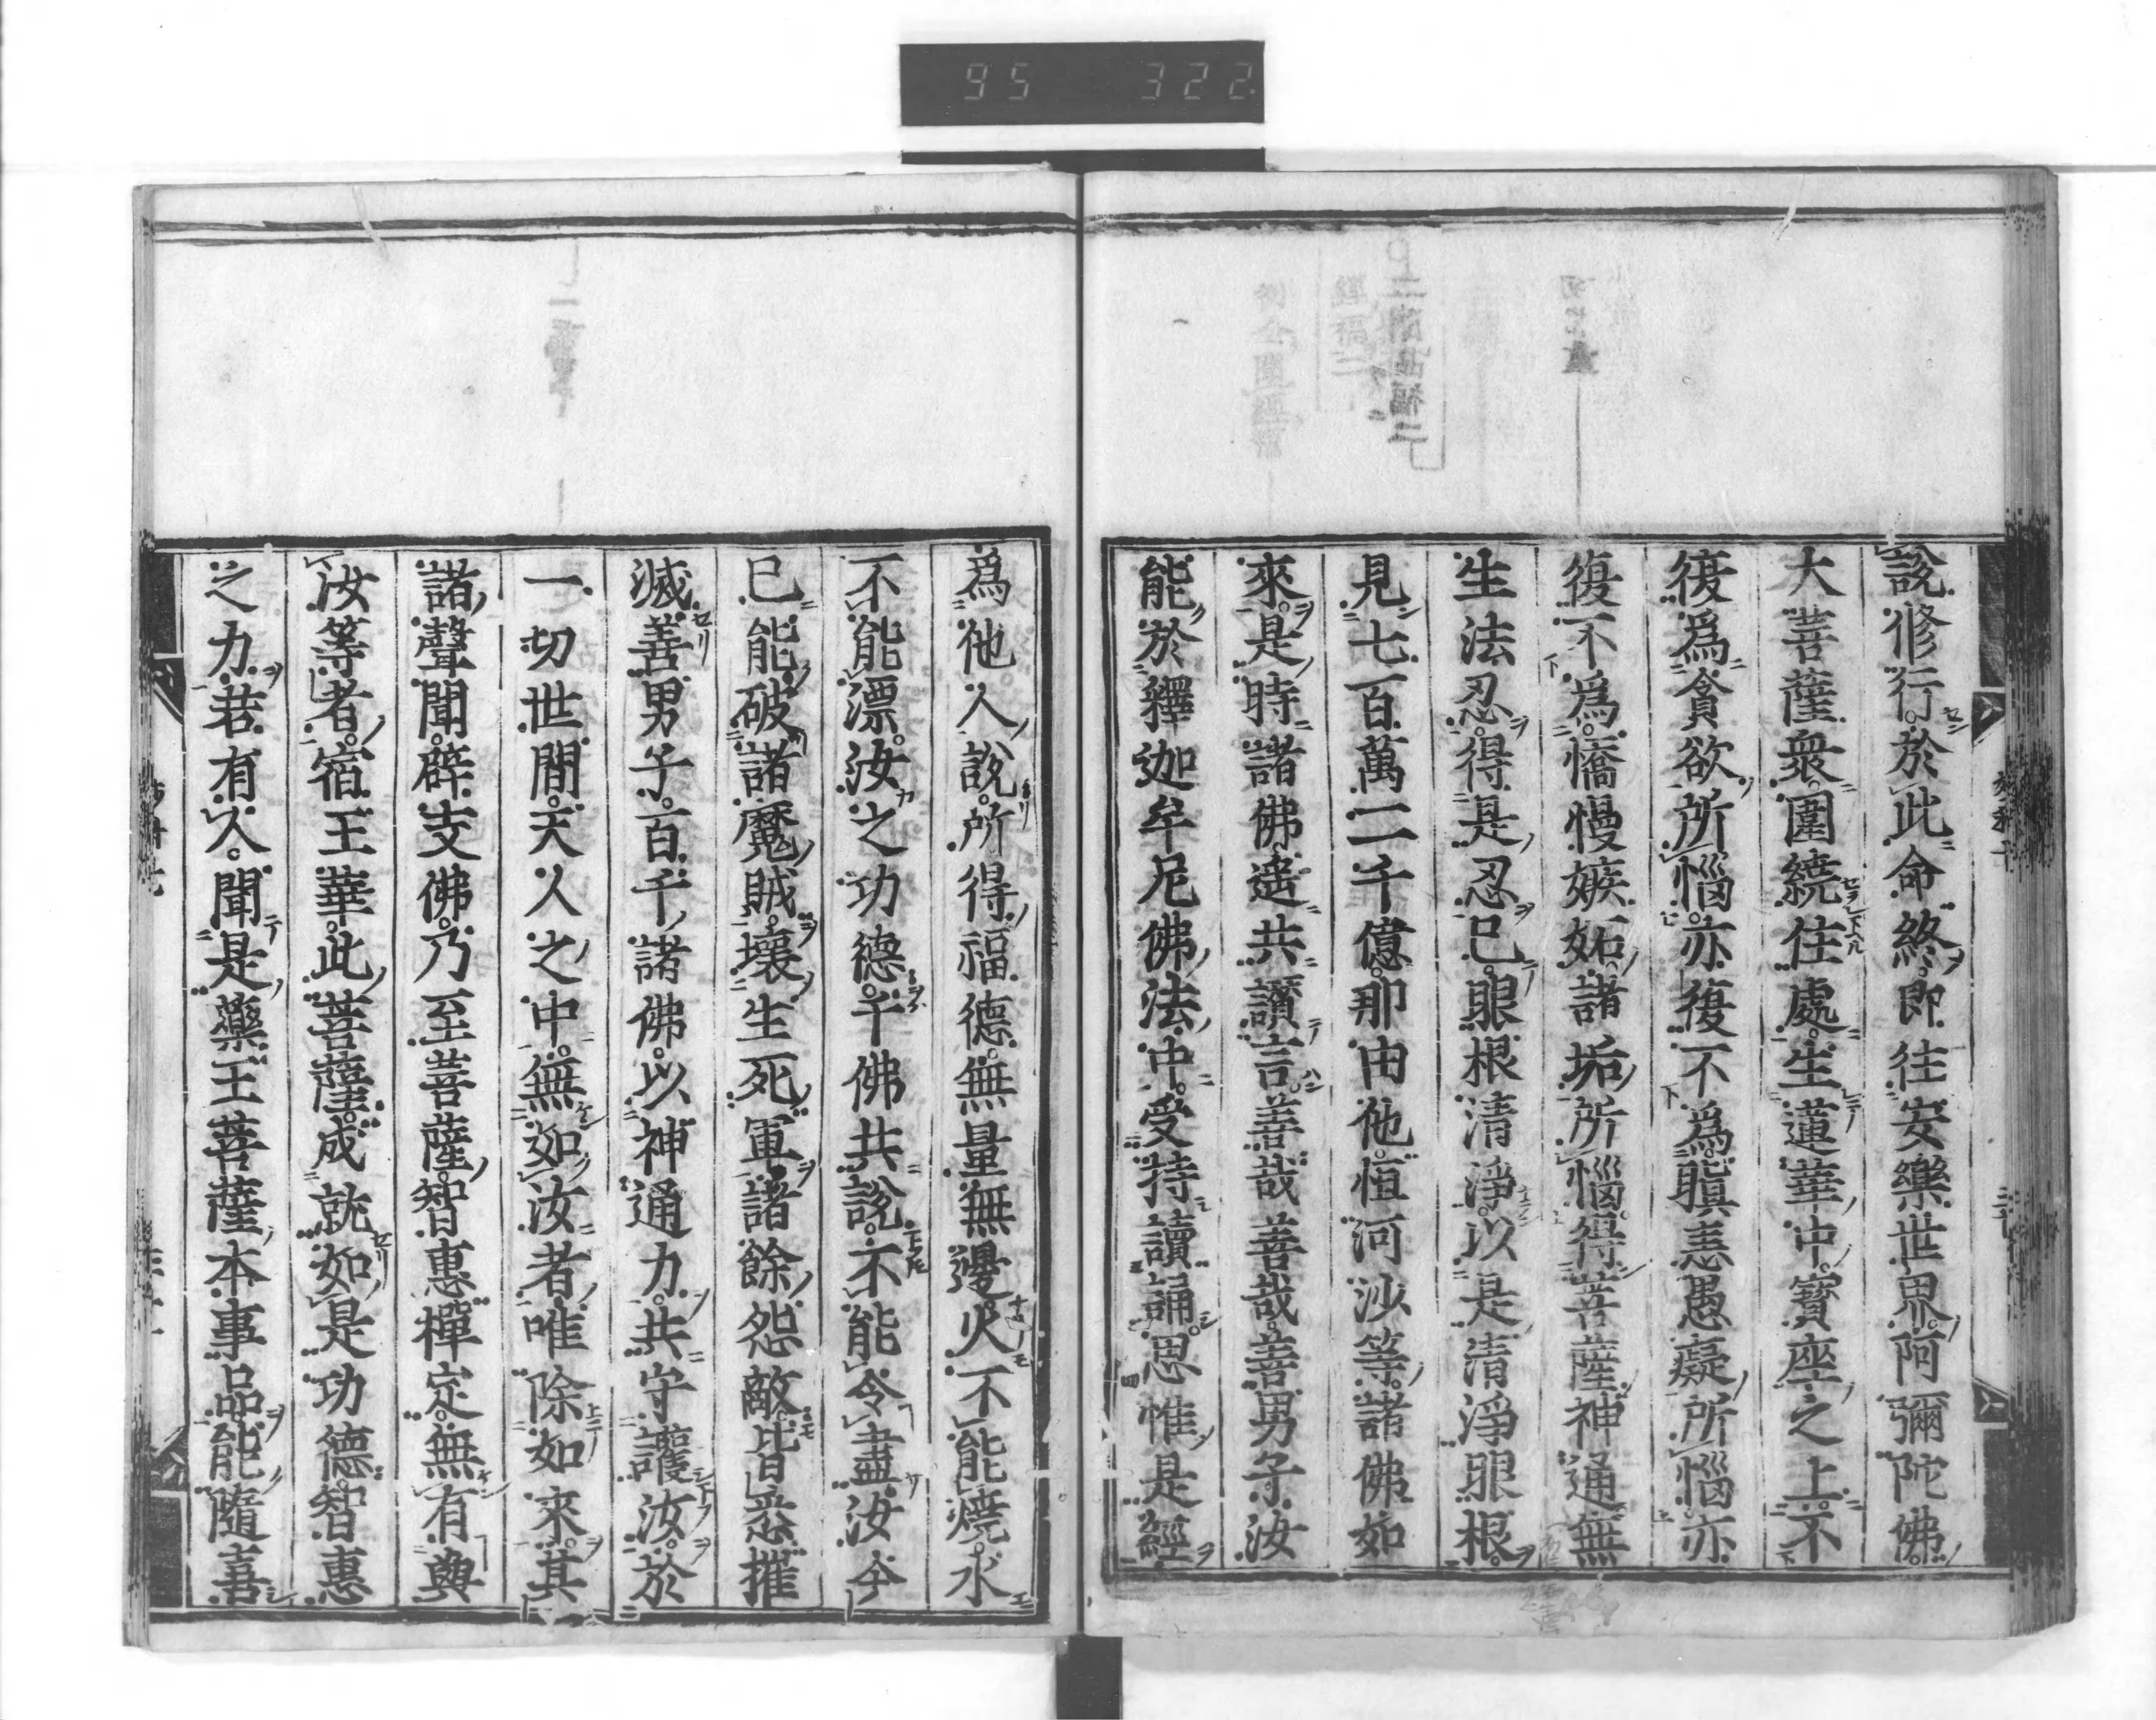 95 322
說修行於此命終即往安樂世界阿彌陀佛
大菩薩衆圍繞住處生蓮華中寶座之上不
復爲貪欲所惱亦復不爲瞋恚愚癡所惱亦
復不爲憍慢嫉妬諸垢所惱得菩薩神通無
生法忍得是忍已眼根清淨以是清淨眼根
見七百萬二千億那由他恒河沙等諸佛如
來是時諸佛遙共讚言善哉善哉善男子汝
能於釋迦牟尼佛法中受持讀誦思惟是經
爲他人說所得福德無量無邊火不能燒水
不能漂汝之功德千佛共說不能令盡汝今
已能破諸魔賊壞生死軍諸餘怨敵皆悉摧
滅善男子百千諸佛以神通力共守護汝於
一切世間天人之中無如汝者唯除如來其
諸聲聞辟支佛乃至菩薩智惠禪定無有與
汝等者宿王華此菩薩成就如是功德智惠
之力若有人聞是藥王菩薩本事品能隨喜